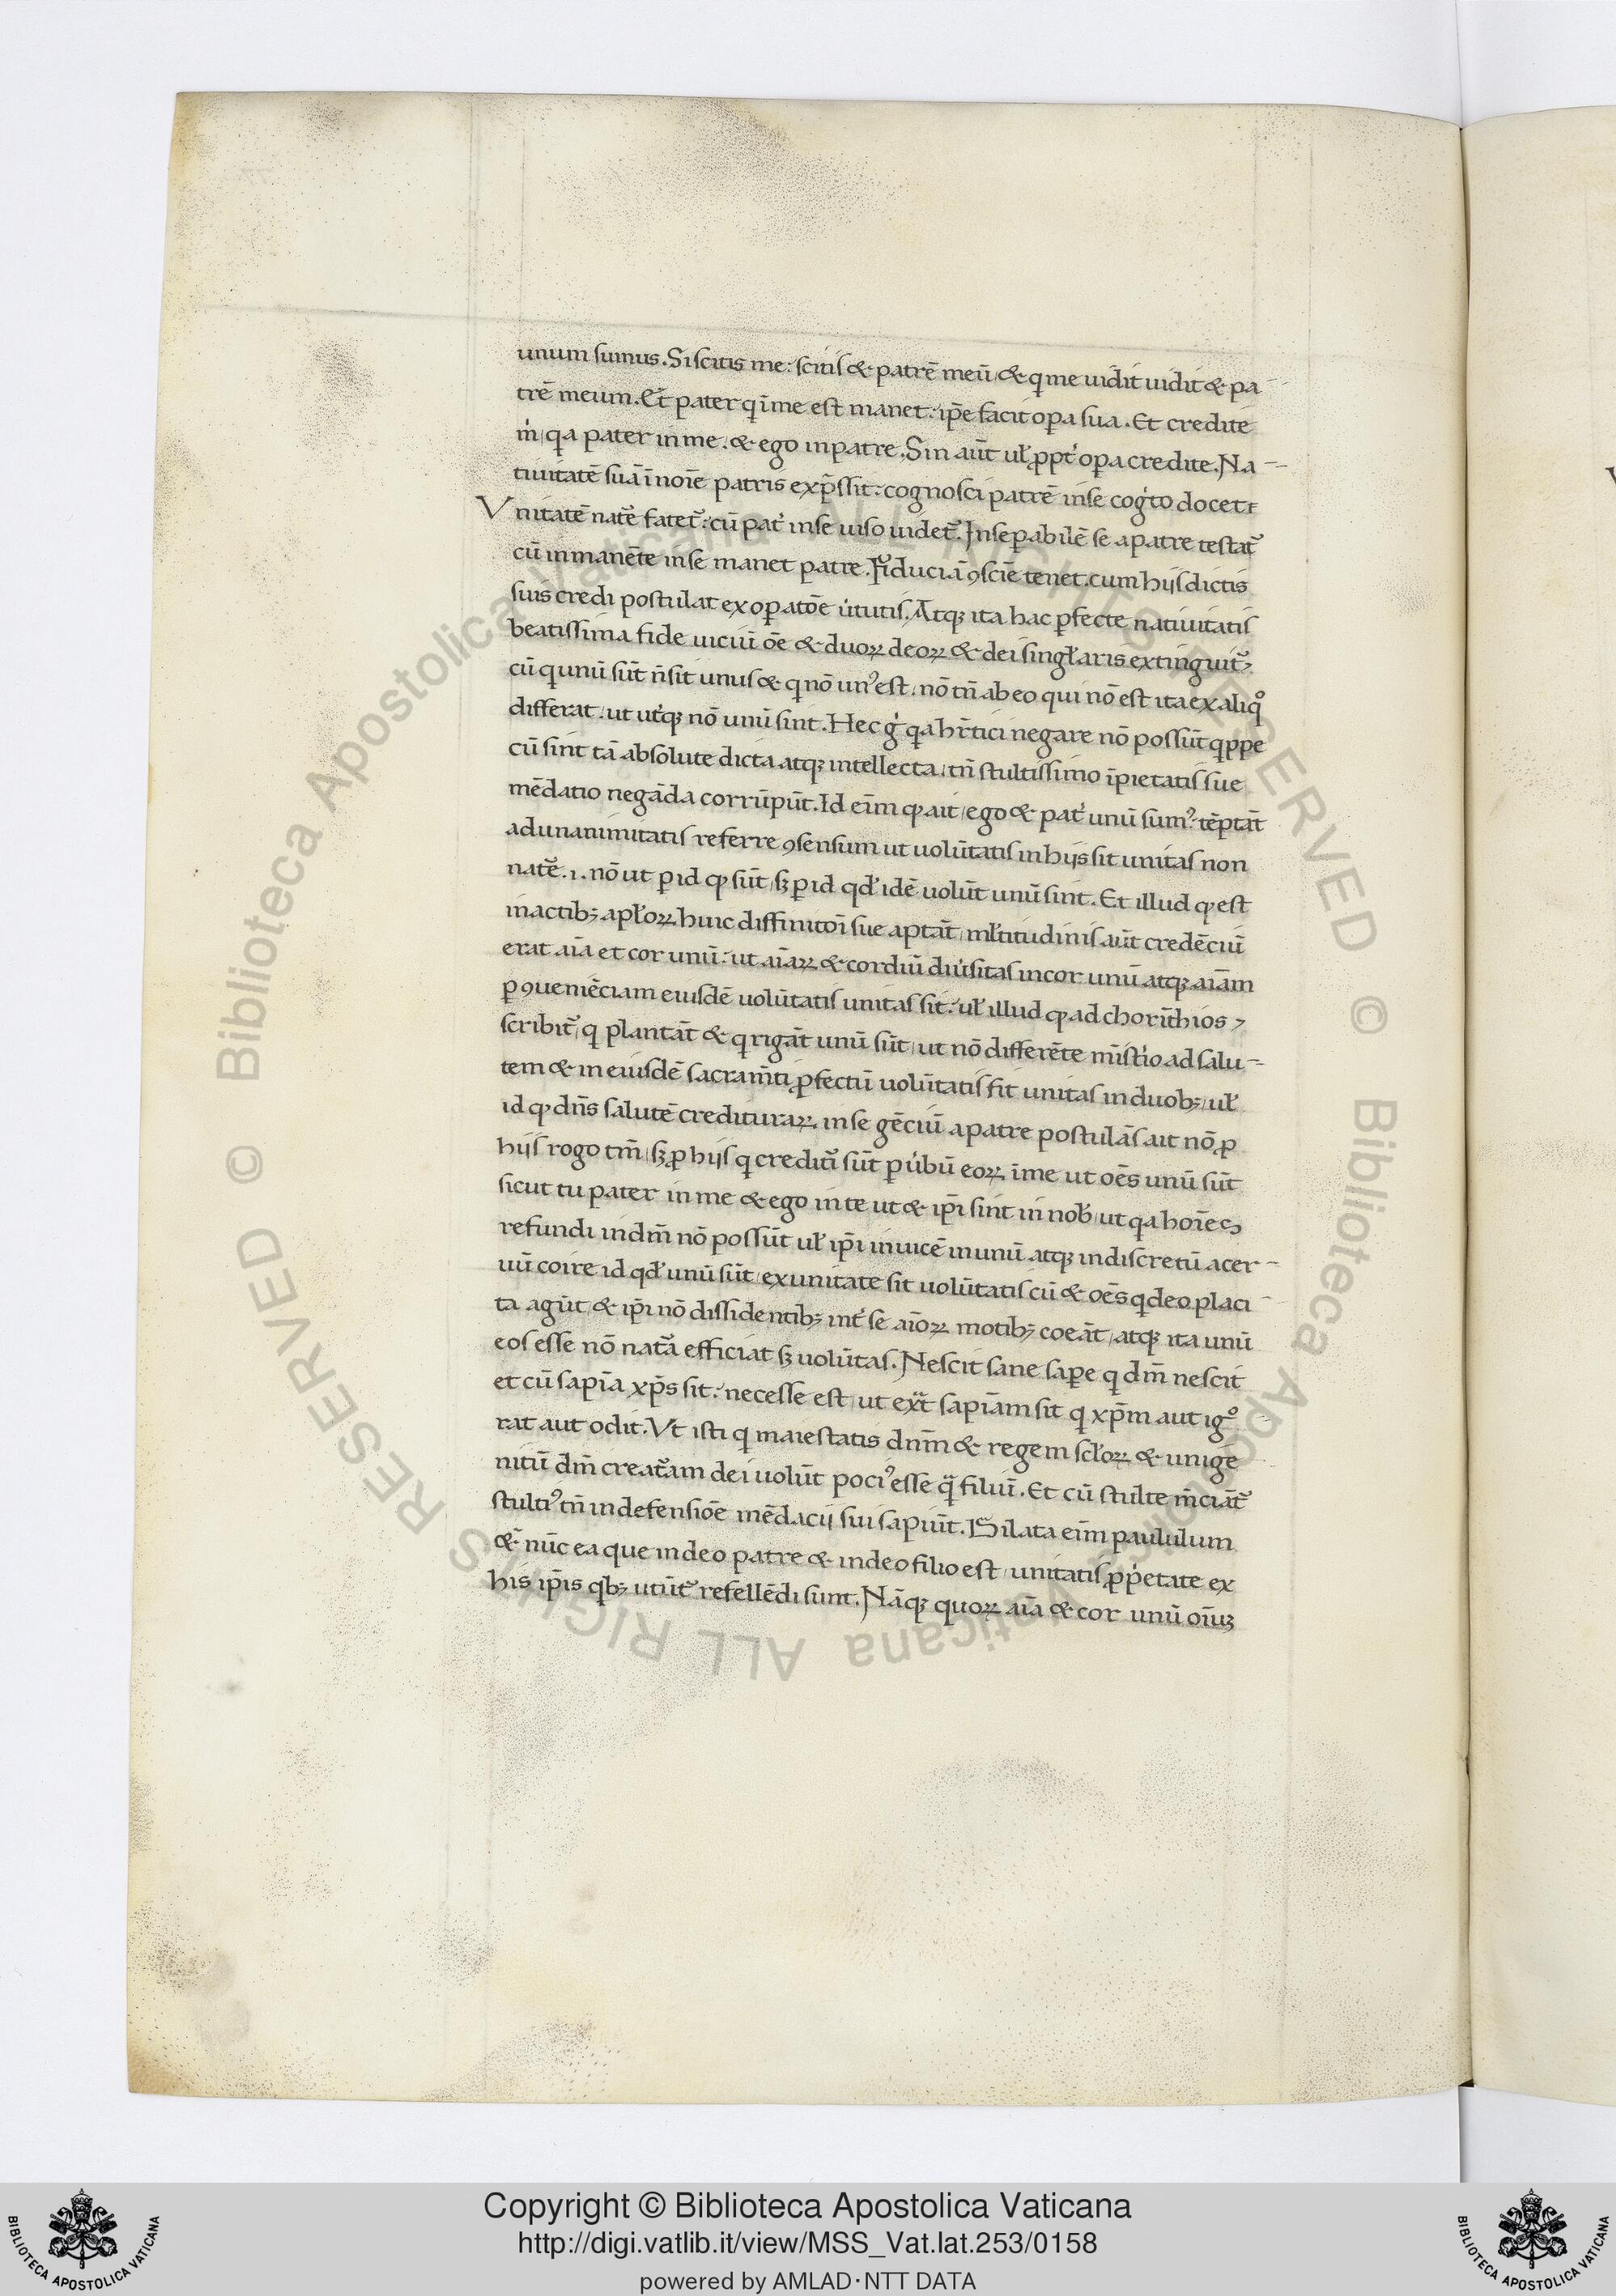 unum sumus. Si scitis me: scitis & patrē meū, & q me uidit uidit & pa-
trē meum. Et pater q ī me est manet: ip̄e facit opa sua. Et credite
m̓ qa pater in me. & ego in patre. Sin aūt uł ppt̓ opa credite. Na-
tiuitatē suā ī noīe patris exp̄ssit: cognosci patrē in se cog̓to docet:
Vnitatē nat̄e fatet̓: cū pat̓ in se uiso uidet̓. Inseꝑabilē se a patre testat̓
cū in manēte in se manet patre. Fiduciā ꝯsciē tenet. cum hijs dictis
suis credi postulat ex oꝑatōe u̓tutis. Atqꝫ ita hac ꝑfecte natiuitatis
beatissima fide uiciū ōe & duoꝝ deoꝝ & dei singł aris extinguit̓.
cū q unū sūt n̄ sit unus & q nō unꝰ est. nō tn̄ ab eo qui nō est ita ex aliqͦ
differat. ut ut̓qꝫ nō unū sint. Hec g̓ qa hr̄tici negare nō possūt qppe
cū sint tā absolute dicta atqꝫ intellecta. tn̄ stultissimo īpietatis sue
mēdatio negāda corrūpūt. Id eīm qͦ ait, ego & pat̓ unū sumꝰ: tēptāt
ad unanimitatis referre ꝯsensum ut uolūtatis in hijs sit unitas non
nat̄e .i. nō ut ꝑ id qͦ sūt, sꝫ ꝑ id qđ idē uolūt unū sint. Et illud qͦ est
in actibꝫ apłoꝝ huic diffinitōi sue aptāt, młtitudinis aūt credēciū
erat aīa et cor unū: ut aīaꝝ & cordiū diu̓sitas in cor unū atqꝫ aīam
ꝑ ꝯueniēciam eiusdē uolūtatis unitas sit: uł illud qͦ ad chorīthios
scribit̓, q plantāt & q rigāt unū sūt, ut nō differēte mīst̓io ad salu-
tem & in eiusdē sacram̄ti ꝓfectū uolūtatis fit unitas in duobꝫ, uł
id qͦ dn̄s salutē credituraꝝ in se gēciū a patre postulās ait nō ꝓ
hijs rogo tm̄, sꝫ ꝓ hijs q credit̓i sūt ꝑ u̓bū eoꝝ ī me ut oēs unū sūt
sicut tu pater in me & ego in te ut & ip̄i sint in nob̓, ut qa hoīes
refundi in dm̄ nō possūt uł ip̄i inuicē in unū atqꝫ indiscretū acer-
uū coire id qđ unū sūt, ex unitate sit uolūtatis cū & oēs q deo placi-
ta agūt, & ip̄i nō dissidentibꝫ int̓ se aīoꝝ motibꝫ coeāt, atqꝫ ita unū
eos esse nō nat̓a efficiat sꝫ uolūtas. Nescit sane saꝑe q dm̄ nescit
et cū sapīa xp̄s sit: necesse est, ut ext̓ sapīam sit q xp̄m aut igͦ-
rat aut odit. Vt isti q maiestatis dnm̄ & regem scłoꝝ & unige-
nitū dm̄ creat̓am dei uolūt pociꝰ esse q̄ filiū. Et cū stulte m̄ciāt̓
stultiꝰ tn̄ in defensiōe mēdacij sui sapiūt. Dilata eīm paululum
& nūc ea que in deo patre & in deo filio est, unitatis ꝓp̓etate ex
his ip̄is qbꝫ utūt̓ refellēdi sunt. Nāqꝫ quoꝝ aīa & cor unū oīuꝫ
Copyright © Biblioteca Apostolica Vaticana
http://digi.vatlib.it/view/MSS_Vat.lat.253/0158
powered by AMLAD·NTT DATA
BIBLIOTECA APOSTOLICA VATICANA
BIBLIOTECA APOSTOLICA VATICANA
© Biblioteca Apostolica Vaticana ALL RIGHTS RESERVED
© Biblioteca Apostolica Vaticana ALL RIGHTS RESERVED